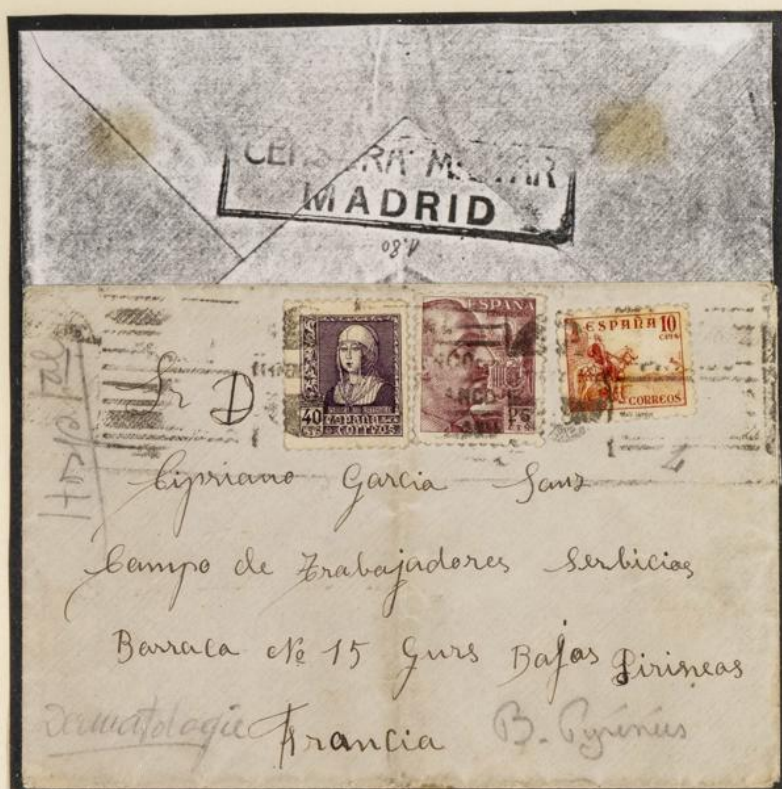 CENSURA MILITAR
MADRID
1.80
Hospital
Sr D
40
CTS
ESPAÑA
CORREOS
ESPAÑA
ESPAÑA 10
CTS
CORREOS
Cipriano Garcia Sanz
Campo de Trabajadores Serbicios
Barraca No 15 Gurs Bajos Pirineos
Dermatologie
Francia
B. Pyrénées